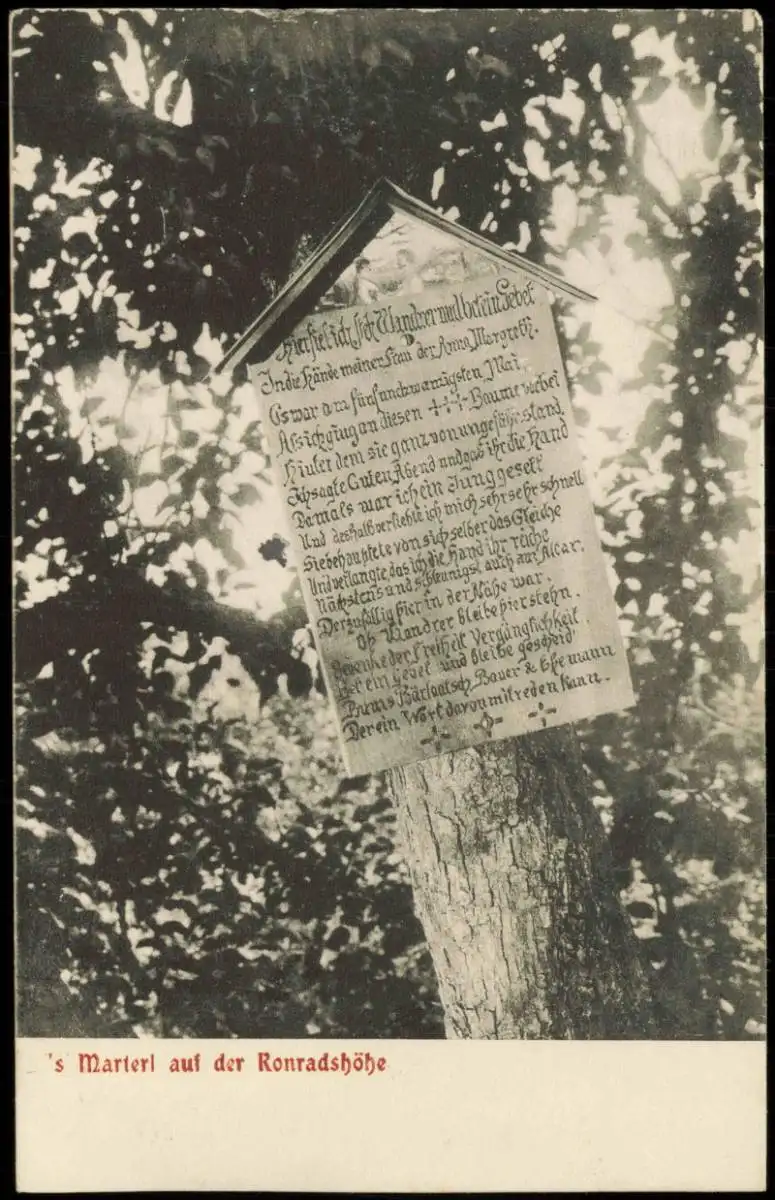 Hier fiel ich Ach Wandrer und bet ein Gebet
In die Hände meiner Frau der Anna Margreth.
Es war am fünfundzwanzigsten Mai
Als ich ging an diesen Baume vorbei
Hinter dem sie ganz von ungefähr stand,
Ich sagte Guten Abend und gab ihr die Hand
Damals war ich ein Junggesell
Und deshalb verliebte ich mich sehr sehr schnell
Sie behauptete von sich selber das Gleiche
Und verlangte das ich die Hand ihr reiche
Nächstens und schleunigst auch am Altar,
Der zufällig hier in der Nähe war.
Oh Wandrer bleibe hier stehn.
Gedenke der Freiheit Vergänglichkeit
Bet ein Gebet und bleibe gescheid'
Bauer & Ehemann
Der ein Wort davon mitreden kann.
's Marterl auf der Konradshöhe